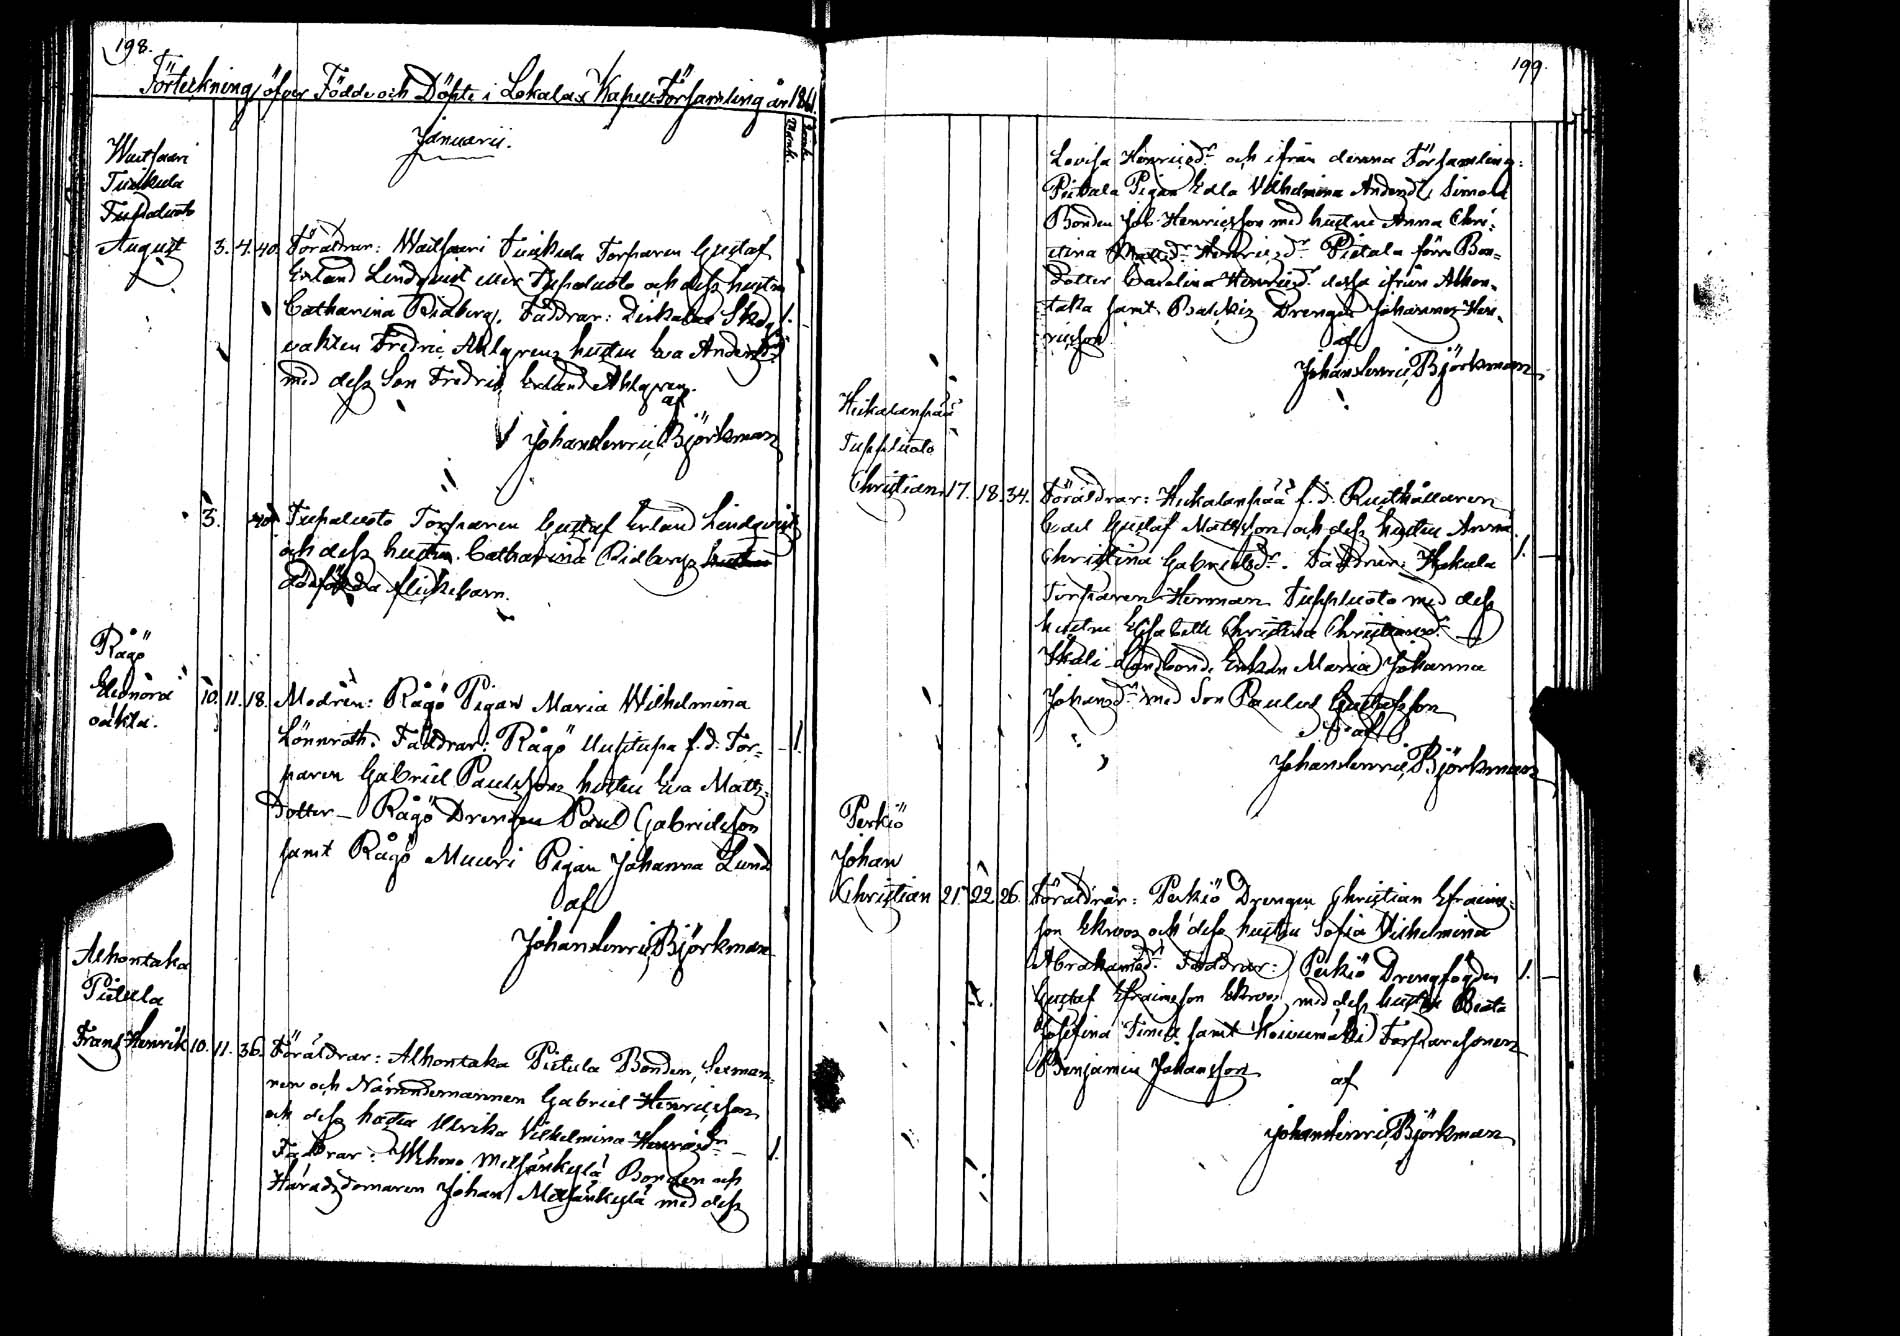 198.
Förteckning öfver Födde och Döpte i Lokalax Kapell Församling år 1861.
Januarii.
Tupaluoto
August 3. 4. 40. Föräldrar: Torparen Gustaf
Erland Lindqvist eller Tupaluoto och dess hustru
Catharina Ridberg. Faddrar: Skog-
vakten Fredric Ahlgrens hustru Eva Andersdr
med dess Son Fredric Erland Ahlgren.
af
Johan Henric Björkman
3. 40. Tupaluoto Torparen Gustaf Erland Lindqvist
och dess hustru Catharina Ridbergs
dödfödda flickebarn.
Rågö
Eleonora
oäkta. 10. 11. 18. Modren: Rågö Pigan Maria Wilhelmina
Lönnroth. Faddrar: Rågö Uusitupa f.d. Tor-
paren Gabriel Paulssons hustru Eva Matts-
dotter – Rågö Drengen Paul Gabrielsson
samt Rågö Muuri Pigan Johanna Lund
af
Johan Henric Björkman
Alhontaka
Pietola
Frans Henrik 10. 11. 36. Föräldrar: Alhontaka Pietola Bonden, Sexman-
nen och Nämndemannen Gabriel Henricsson
och dess hustru Ulrika Vilhelmina Henricsdr
Faddrar: Bonden och
Häradsdomaren Johan med dess
199.
Lovisa Henricsdr och ifrån denna Församling:
Pietola Pigan Edla Vilhelmina Andersdr, Simola
Bonden Job Henricsson med hustru Anna Chri-
stina Mattsdr Henricsdr Pietola förre Bon-
dotter Carolina Henricsdr dessa ifrån Alhon-
taka samt Drengen Johannes Hen-
ricsson
af
Johan Henric Björkman
Heikalanpää
Tuppluoto
Christian 17. 18. 34. Föräldrar: Heikalanpää f.d. Rusthållaren
Carl Gustaf Mattsson och dess hustru Anna
Christina Gabrielsdr. Faddrar: Hakala
Torparen Herman Tuppluoto med dess
hustru Elisabeth Christina Christiansdr –
Landbond. Enkan Maria Johanna
Johansdr med Son Paulus Gustafsson
af
Johan Henric Björkman
Perkiö
Johan
Christian 21. 22. 26. Föräldrar: Perkiö Drengen Christian Efraims-
son Ekroos och dess hustru Sofia Vilhelmina
Abrahamsdr. Faddrar: Perkiö Drengfogden
Gustaf Efraimsson Ekroos med dess hustru Beata
Josefina samt Koivumäki Torparesonen
Benjamin Johansson
af
Johan Henric Björkman